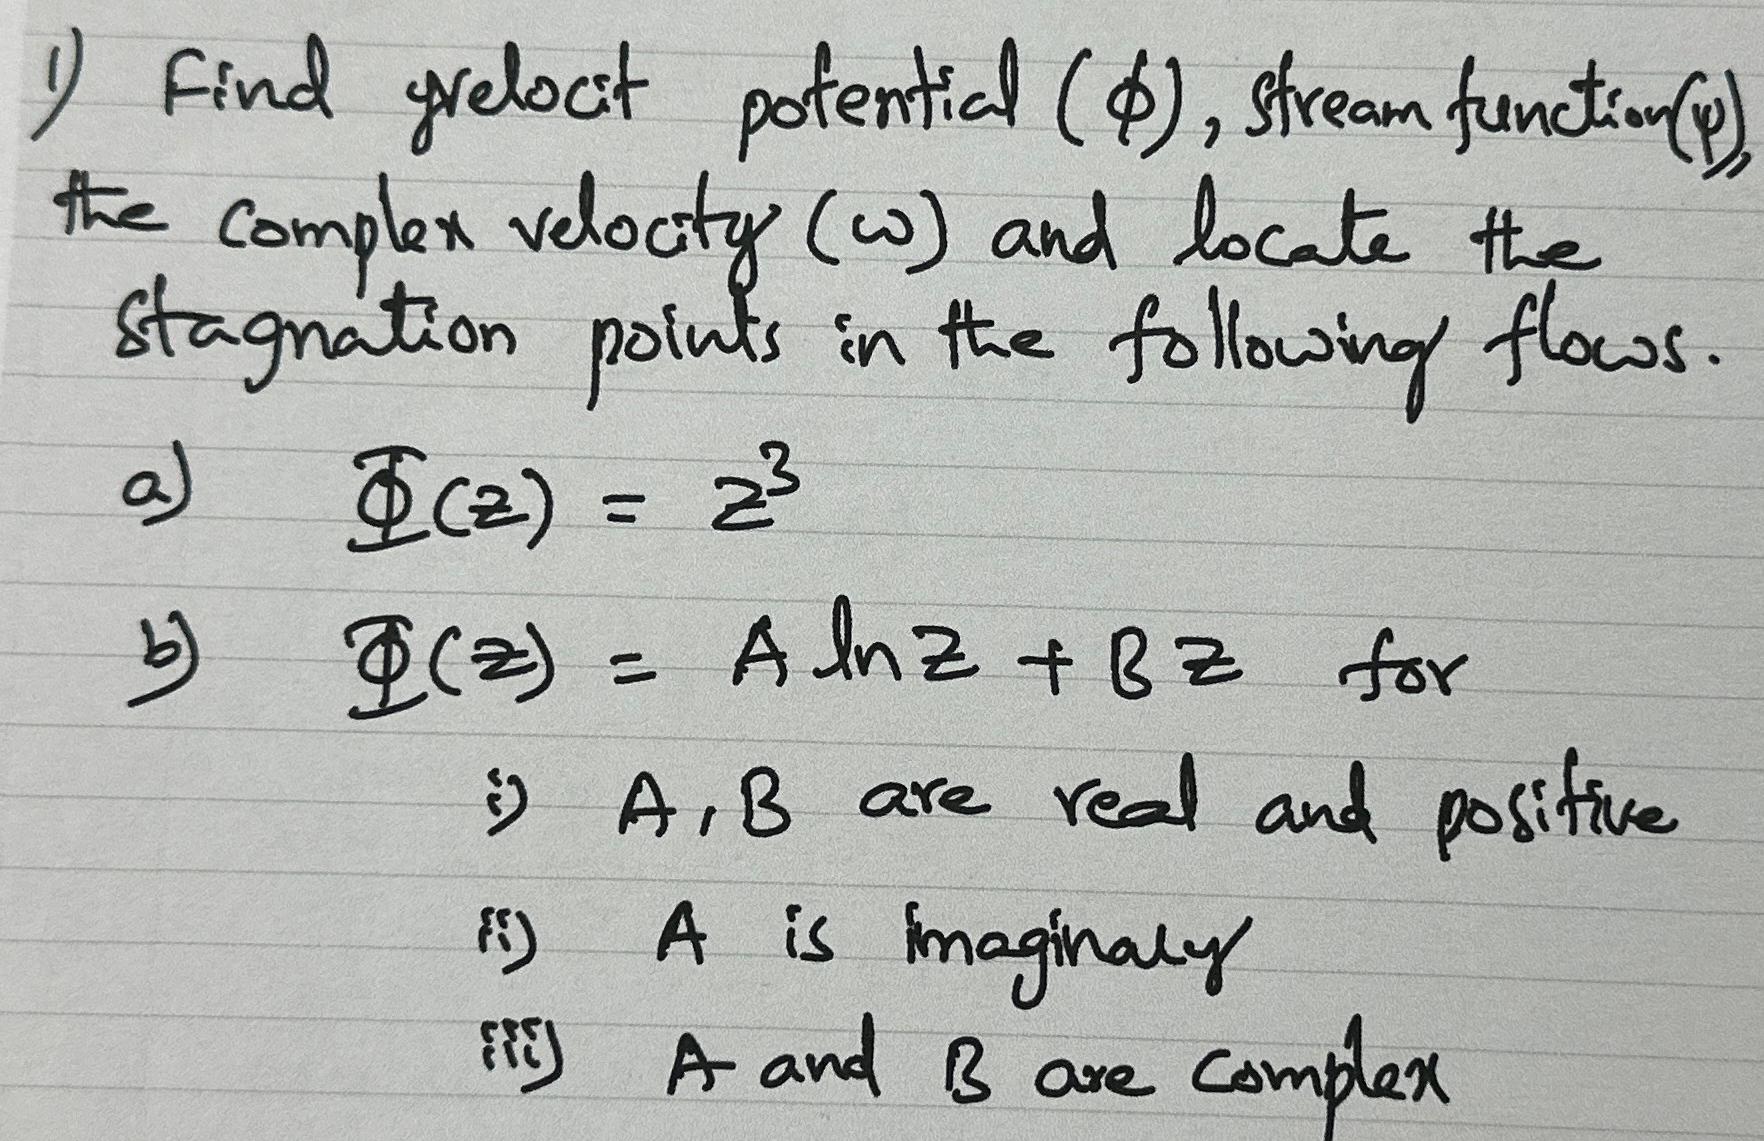 1) Find velocit potential (ϕ), stream function(ψ),
the complex velocity (ω) and locate the
stagnation points in the following flows.
a) Φ(z) = z³
b) Φ(z) = A ln z + B z for
i) A, B are real and positive
ii) A is imaginary
iii) A and B are complex